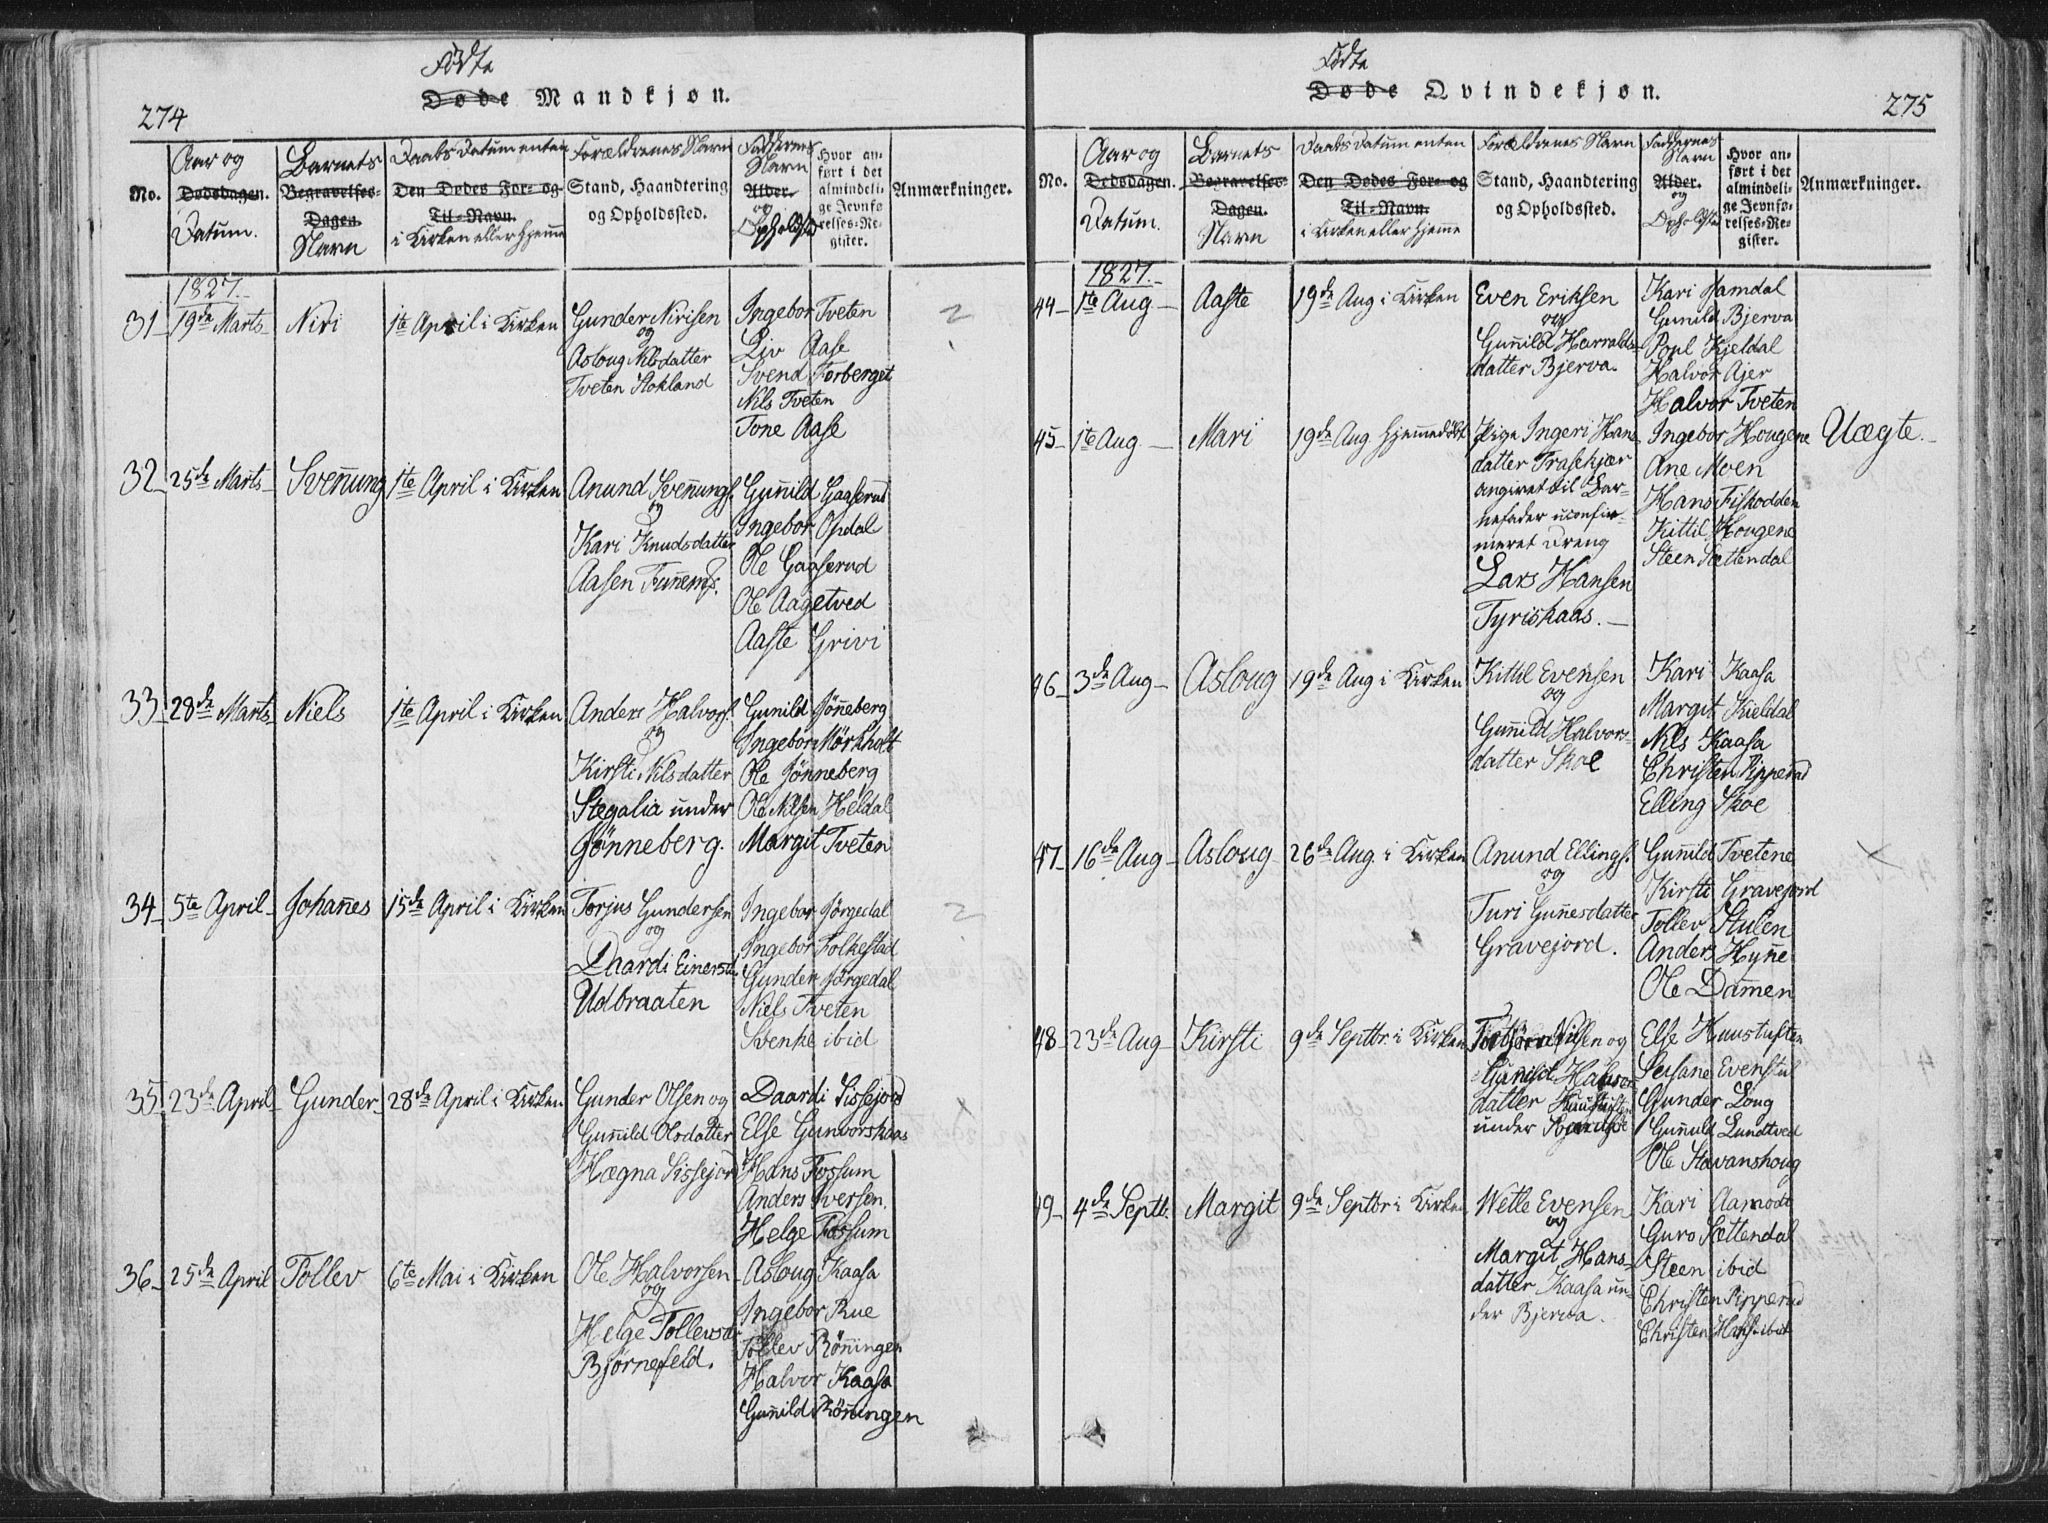 274
Fødte
Døde Mandkjøn.
No.
Aar og
Dødsdagen.
Datum.
Barnets
Begravelses-
Dagen.
Navn
Daabs Datum enten
Den Dødes For- og
Til-Navn.
i Kirken eller Hjemme
Forældrenes Navn
Stand, Haandtering
og Opholdssted.
Faddernes
Navn
Alder.
og
Opholdsted
Hvor an-
ført i det
almindeli-
ge Jevnfø-
relses-Re-
gister.
Anmærkninger.
1827.
31 19de Marts Niri 1te April i Kirken
Gunder Nirisen
og
Asloug Nilsdatter
Tveten Stokland
Ingebor Tveten
Liv Aase
Svend Forberget
Nils Tveten
Tone Aase
2
32 25de Marts Sven̄ung 1te April i Kirken
Anund Svenungs.
og
Kari Knudsdatter
Aasen
Gun̄ild Gaaserud
Ingebor Opdal
Ole Gaaserud
Ole Aagetved
Aaste Grivi
33 28de Marts Niels 1te April i Kirken
Anders Halvors.
og
Kirsti Nilsdatter
Stegalia under
Jønneberg.
Gunild Jøn̄eberg
Ingebor Mørkholt
Ole Jønneberg
Ole Nilsen Heldal
Margit Tveten
34 5te April Johan̄es 15de April i Kirken
Torjus Gundersen
og
Daardi Einersd.
Udbraaten
Ingebor Jørgedal
Ingebor Folkestad
Gunder Jørgedal
Niels Tveten
Svenke ibid
2
35 23de April Gunder 28de April i Kirken
Gunder Olsen og
Gun̄ild Olsdatter
Hægna Sissejord
Daardi Sissejord
Else Gunvorskaas
Hans Fossum
Anders Iversen
Helge Fossum
x
36 25de April Tollev 6te Mai i Kirken
Ole Halvorsen
og
Helge Tollevsdr
Bjørnefeld.
Asloug Kaasa
Ingebor Rue
Tollev Røningen
Halvor Kaasa
Gun̄ild Røningen
275
Fødte
Døde Qvindekjøn.
No.
Aar og
Dødsdagen.
Datum.
Barnets
Begravelses-
Dagen.
Navn
Daabs Datum enten
Den Dødes For- og
Til-Navn.
i Kirken eller Hjemme
Forældrenes Navn
Stand, Haandtering
og Opholdssted.
Faddernes
Navn
Alder.
og
Opholdsted
Hvor an-
ført i det
almindeli-
ge Jevnfø-
relses-Re-
gister.
Anmærkninger.
1827.
44 1te Aug Aaste 19de Aug i Kirken
Even Eriksen
og
Gun̄ild Harralds-
datter Bjerva.
Kari Hamdal
Gunild Bjerva
Poul Kjeldal
Halvor Ajer
Halvor Tveten
45 1te Aug Mari 19de Aug Hjem̄edøbt
Pige Ingeri Hans-
datter Frasekjær
angivet til Bar-
nefader uconfir-
meret Dreng
Lars Hansen
Tyriskaas.
Ingebor Hougene
Ane Moen
Hans Fiskodden
Kittil Hougene
Steen Sættendal
Uægte.
46 3de Aug Asloug 19de Aug i Kirken
Kittil Evensen
og
Gun̄ild Halvors-
datter Skoe
Kari Kaasa
Margit Kieldal
Nils Kaasa
Christen Pipperud
Elling Skoe
47 16de Aug Asloug 26de Aug i Kirken
Anund Ellings.
og
Turi Gun̄esdatter
Gravejord.
Gun̄ild Tvetene
Kirsti Gravejord
Tollev Stulen
Anders Hyn̄e
Ole Dam̄en
x
48 23de Aug Kirsti 9de Septbr. i Kirken
Torbjørn Nilsen og
Gunild Halvor
datter
under
Else Huustuften
Evenstul
Gunder Loug
Gunuld Lundtved
Ole Stavanshoug
49 4de Septb. Margit 9de Septbr i Kirken
Wetle Evensen
og
Margit Hans-
datter Kaasa un-
der Bjerva.
Kari Aamodt
Guro Sættendal
Steen ibid
Christen Pipperud
Christen Hans. ibid